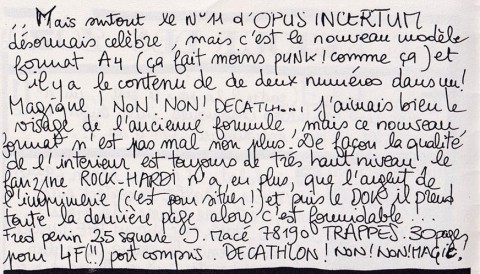 .. Mais surtout le N°11 d'OPUS INCERTUM
désormais celèbre, mais c'est le nouveau modèle
format A4 (ça fait moins PUNK! comme ça) et
il y a le contenu de de deux numéros dans un!
Magique! NON! NON! DECATHLON.. j'aimais bien le
visage de l'ancienne formule, mais ce nouveau
format n'est pas mal non plus. De façon la qualité
de l'interieur est toujours de très haut niveau. le
fanzine ROCK-HARDI n'a, en plus, que l'argent de
l'imprimerie (c'est pour situer!) et puis le DOK il prend
toute la dernière page alors c'est formidable...
Fred perrin 25 square J. Macé 78190 TRAPPES. 30 pages
pour 4F(!!) port compris. DECATHLON! NON! NON! MAGIE!